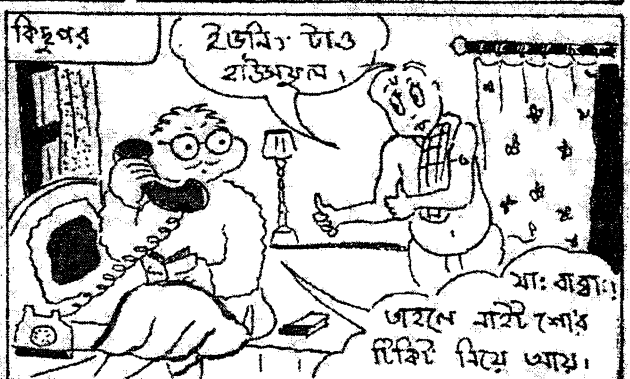 কিছুপর
ইভনিং টাও
হাউসফুল।
যাঃ বাব্বাঃ!
তাহলে নাইট শো'র
টিকিট নিয়ে আয়।